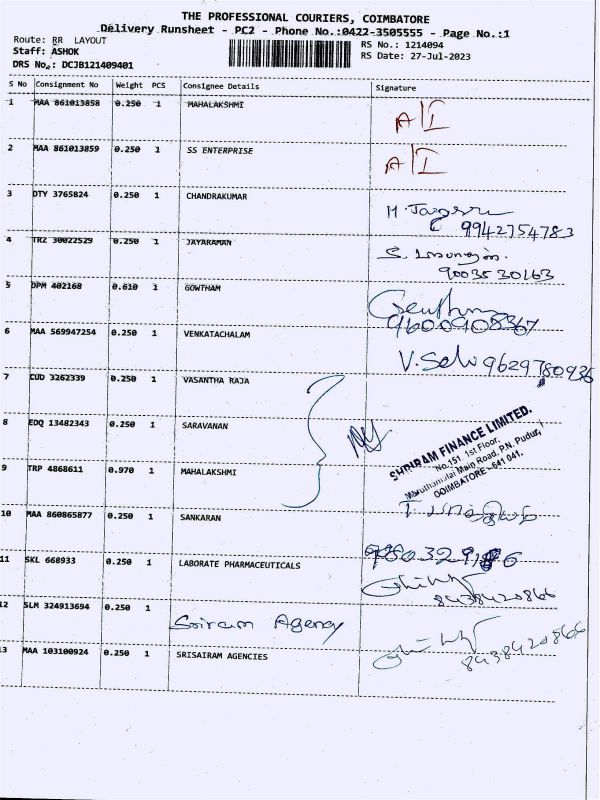 THE PROFESSIONAL COURIERS, COIMBATORE
Delivery Runsheet - PC2 - Phone No.:0422-3505555 - Page No.:1
Route: RR LAYOUT
RS No.: 1214094
Staff: ASHOK
RS Date: 27-Jul-2023
DRS No.: DCJB121409401
S No Consignment No Weight PCS Consignee Details Signature
1 MAA 861013858 0.250 1 MAHALAKSHMI
2 MAA 861013859 0.250 1 SS ENTERPRISE
3 DTY 3765824 0.250 1 CHANDRAKUMAR
9942754783
4 TRZ 30022529 0.250 1 JAYARAMAN
9003530163
5 DPM 402168 0.610 1 GOWTHAM
6 MAA 569947254 0.250 1 VENKATACHALAM
V. Selvi 9629780936
7 CUD 3262339 0.250 1 VASANTHA RAJA
8 EDQ 13482343 0.250 1 SARAVANAN
SHRIRAM FINANCE LIMITED.
No.151, 1st Floor,
Maruthamalai Main Road, P.N. Pudur,
COIMBATORE - 641 041.
9 TRP 4868611 0.970 1 MAHALAKSHMI
10 MAA 860865877 0.250 1 SANKARAN
11 SKL 668933 0.250 1 LABORATE PHARMACEUTICALS
8438420866
12 SLM 324913694 0.250 1 Sriram Agency
13 MAA 103100924 0.250 1 SRISAIRAM AGENCIES
8438420866